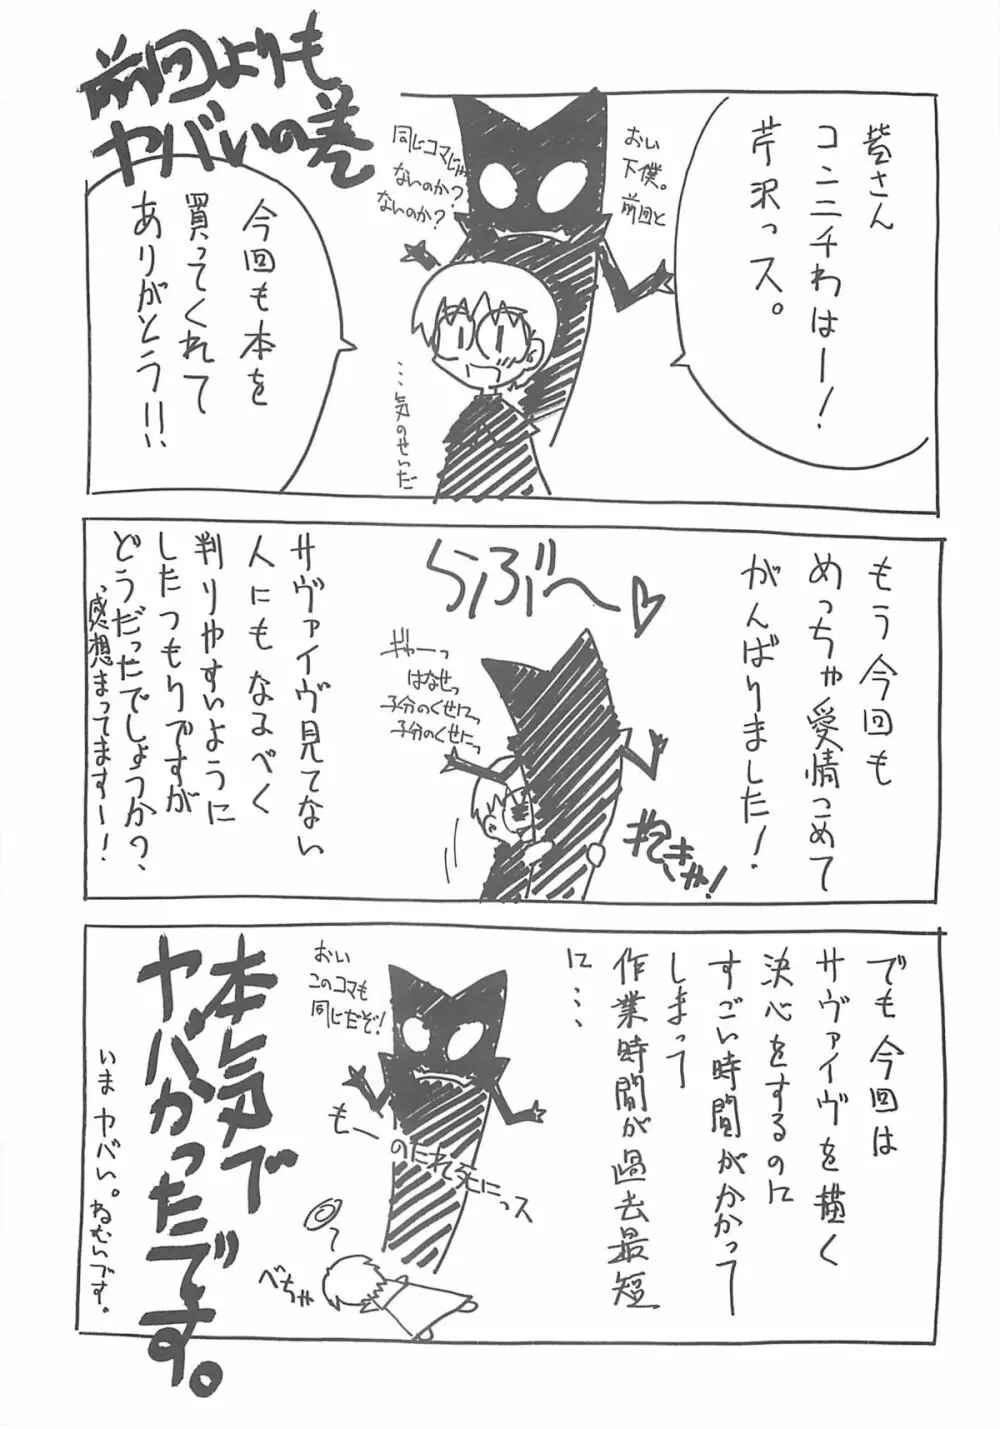 前回よりも
ヤバいの巻
皆さん
コンニチわはー!
芹沢っス。
おい
下僕。
前回と
同じコマじゃ
ないのか?
ないのか?
…気のせいだ
今回も本を
買ってくれて
ありがとう!!
もう今回も
めっちゃ愛情こめて
がんばりました!
らぶ〜♡
ぎゃーっ
はなせっ
子分のくせにっ
子分のくせにっ
だきゃ!
サヴァイヴ見てない
人にもなるべく
判りやすいように
したつもりですが
どうだったでしょうか?、
感想まってますー!
でも今回は
サヴァイヴを描く
決心をするのに
すごい時間がかかって
しまって
作業時間が過去最短
に…
おい
このコマも
同じだぞ!
もー
のたれ死にっス
べちゃ
本気で
ヤバかったです。
いまヤバい。ねむいです。